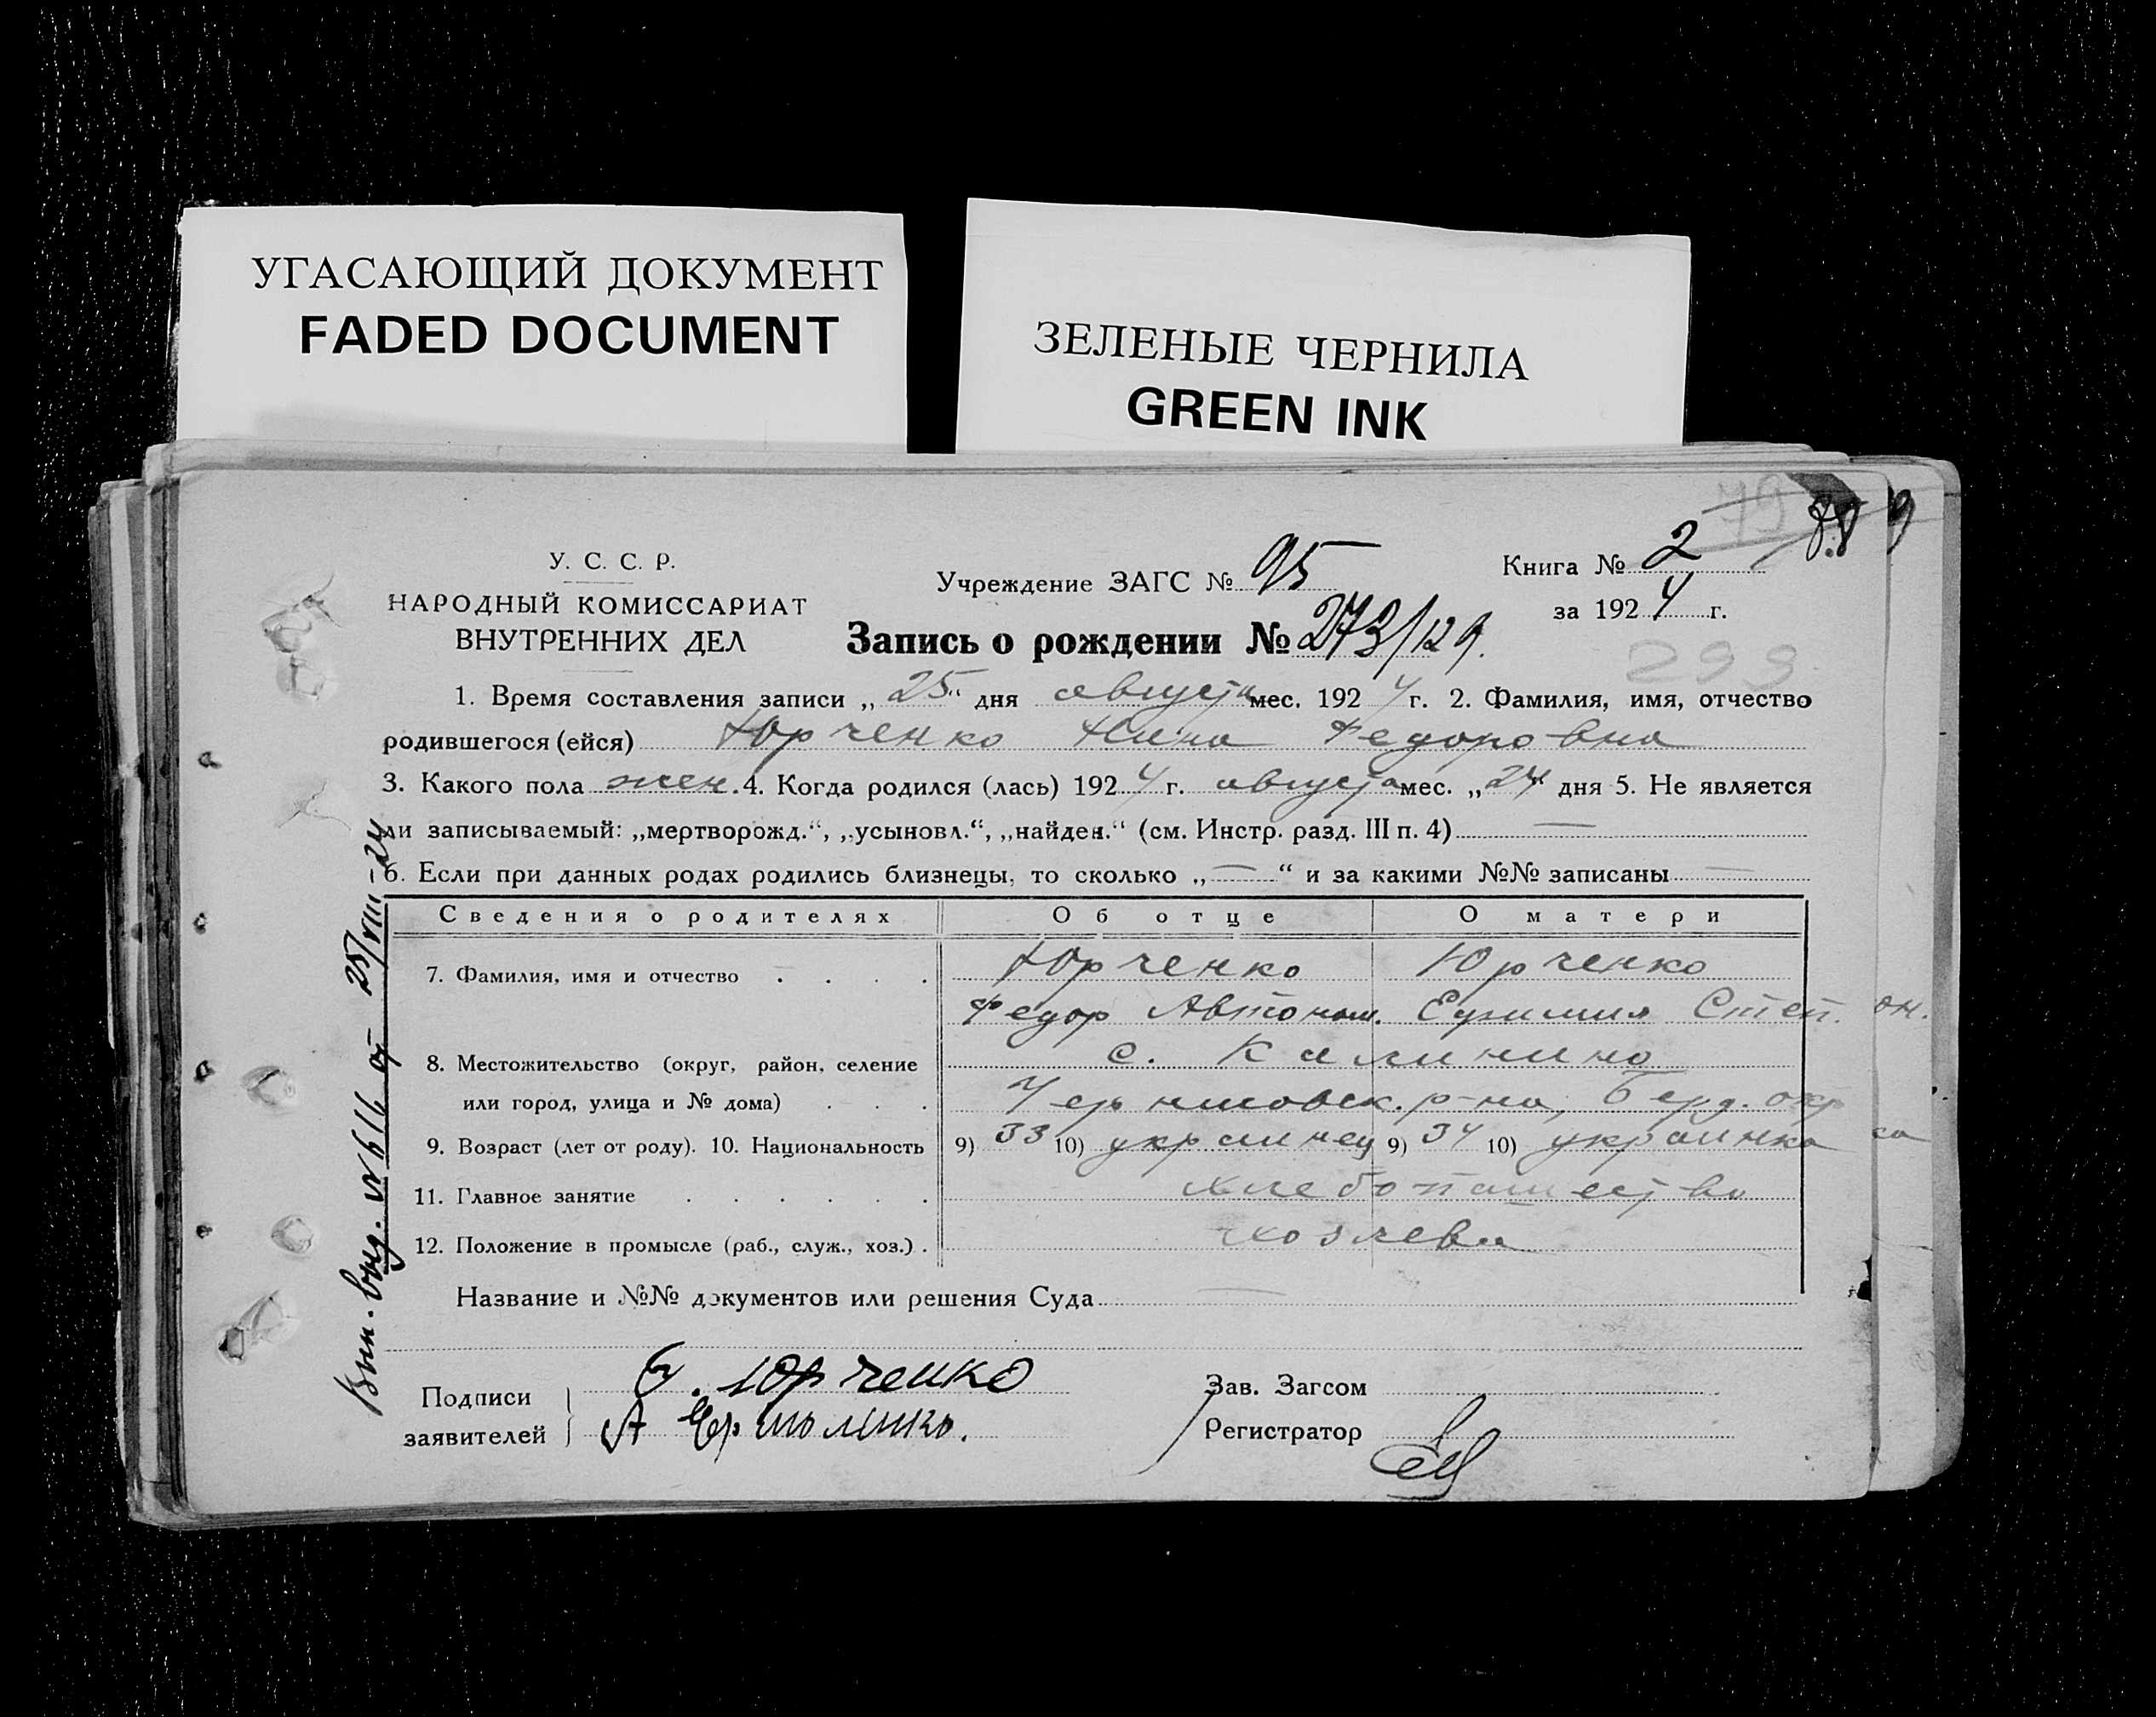 УГАСАЮЩИЙ ДОКУМЕНТ
FADED DOCUMENT
ЗЕЛЕНЫЕ ЧЕРНИЛА
GREEN INK
У. С. С. Р.
НАРОДНЫЙ КОМИССАРИАТ
ВНУТРЕННИХ ДЕЛ
Учреждение ЗАГС № 95
Книга № 2
за 1924 г.
Запись о рождении № 273/129.
299
1. Время составления записи „25“ дня августа мес. 1924 г. 2. Фамилия, имя, отчество
родившегося (ейся) Юрченко Нина Федоровна
3. Какого пола жен. 4. Когда родился (лась) 1924 г. августа мес. „24“ дня 5. Не является
ли записываемый: „мертворожд.“, „усыновл.“, „найден.“ (см. Инстр. разд. III п. 4) —
6. Если при данных родах родились близнецы, то сколько „—“ и за какими №№ записаны —
Сведения о родителях Об отце О матери
7. Фамилия, имя и отчество Юрченко Юрченко
Федор Автоном. Ефимия Степ.
8. Местожительство (округ, район, селение с. Калинино
или город, улица и № дома) Черниговск. р-на, Берд. окр
9. Возраст (лет от роду). 10. Национальность 9) 33 10) украинец 9) 34 10) украинка
11. Главное занятие хлебопашество
12. Положение в промысле (раб., служ., хоз.) хозяева
Название и №№ документов или решения Суда —
Подписи заявителей
Юрченко
А Ермоленко.
Зав. Загсом
Регистратор
Вып. выд. №616 от 25/VIII-24